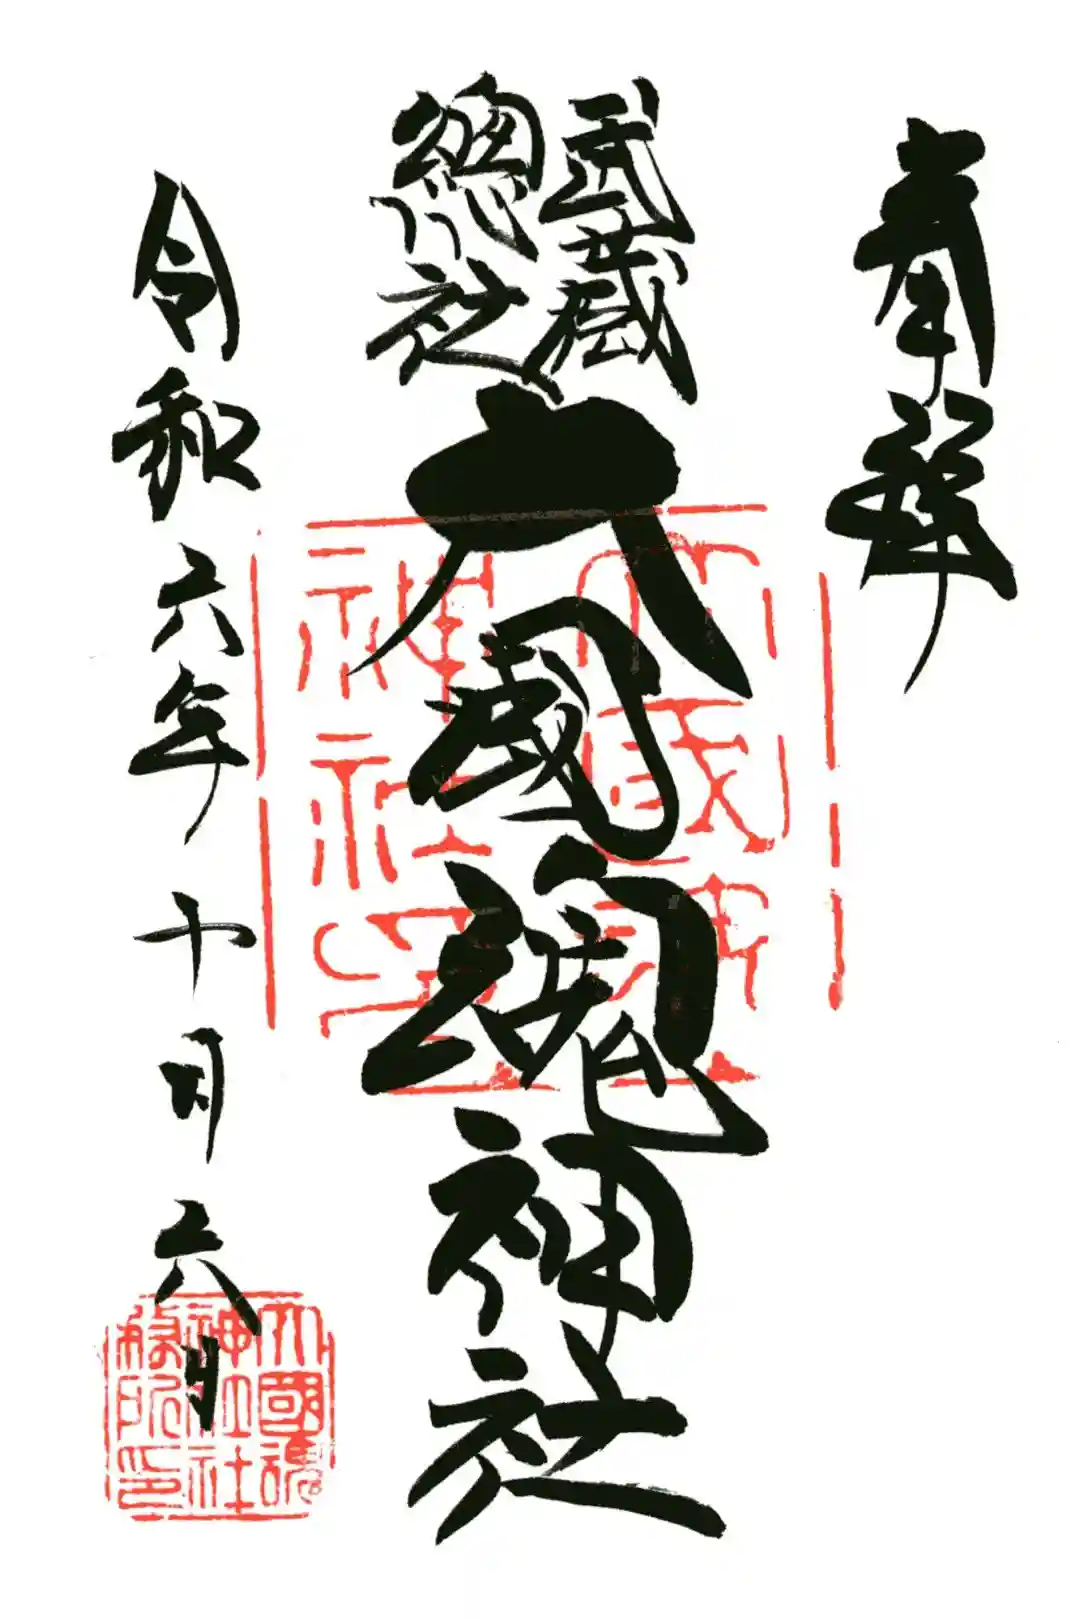 奉拝
武蔵
總社
大國魂神社
令和六年十月六日
大國魂
神社
大國魂
神社社
務所印